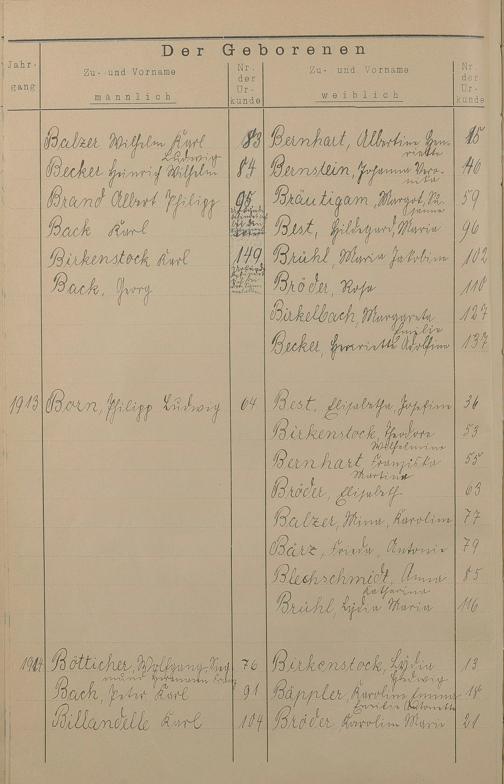 Der Geborenen
Jahr-
gang
Zu- und Vorname
männlich
Nr.
der
Ur-
kunde
Zu- und Vorname
weiblich
Nr.
der
Ur-
kunde
Balzer Wilhelm Karl 83
Ludwig
Bernhart, Albertine Hen- 15
riette
Becker Heinrich Wilhelm 84
Bernstein, Johanna Vero- 46
nika
Brand Albert Philipp 95
Bräutigam, Margot, 59
Back Karl
Best, Hildegard, Maria 96
Birkenstock Karl 149
Brühl, Maria Jakobine 102
Back, Georg
Bröder, Rosa 110
Birkelbach, Margareta 127
Emilie
Becker, Henriette Adolfine 137
1913 Born, Philipp Ludwig 64
Best, Elisabetha, Josefine 36
Birkenstock, Theodore 53
Wilhelmine
Bernhart, Franziska 55
Martina
Bröder, Elisabeth 63
Balzer, Mina, Karoline 77
Bärz, Frieda, Antonie 79
Blechschmidt, Anna 85
Katharina
Brühl, Lydia Maria 116
1914 Bötticher, Wolfgang, Sieg- 76
mund Hermann Franz
Birkenstock, Lydia 13
Hedwig
Bach, Peter Karl 91
Bäppler, Karoline Emma 18
Emilie Antonette
Billandelle Karl 104
Bröder, Karoline Marie 21